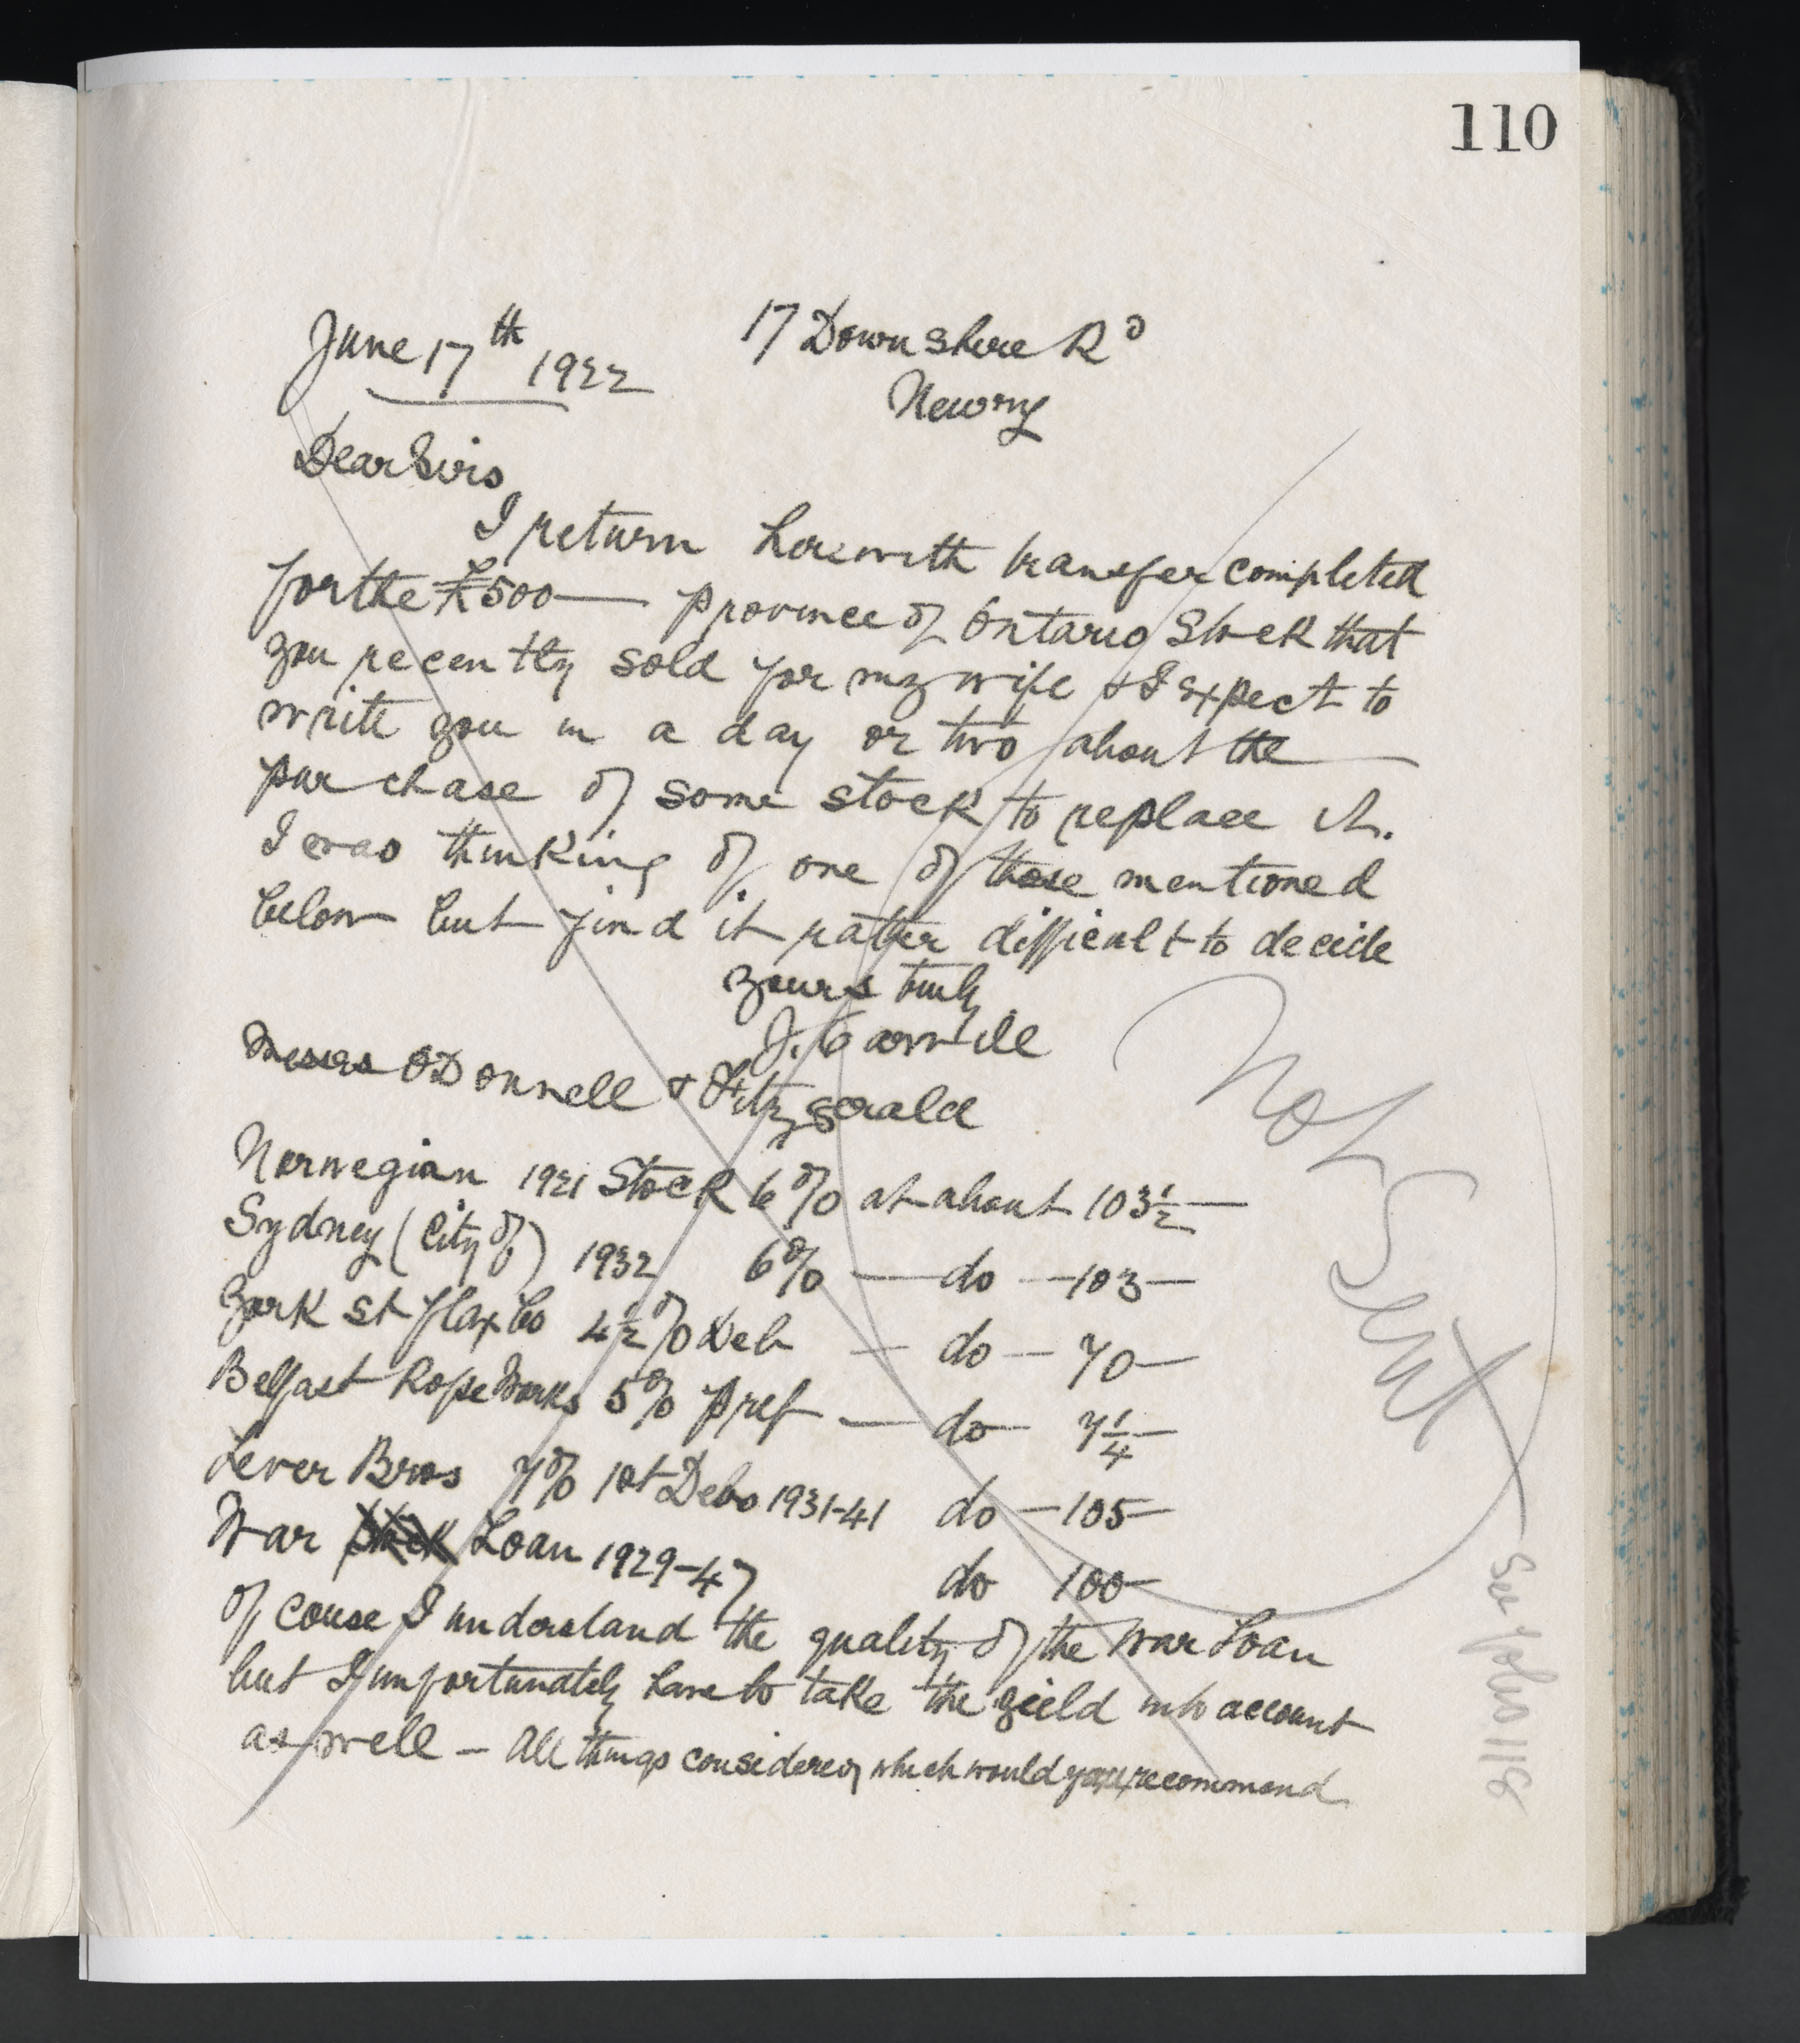 110
June 17th 1922
17 Downshire Rd
Newry
Dear Sirs
I return herewith transfer completed
for the £500 — province of Ontario Stock that
you recently sold for my wife & I expect to
write you in a day or two about the
purchase of some stock to replace it.
I was thinking of one of those mentioned
below but find it rather difficult to decide
yours truly
J. Carvill
Messrs O'Donnell & Fitzgerald
Norwegian 1921 Stock 6% at about 103½ —
Sydney (City of) 1932 6% — do — 103 —
York St Flax Co 4½% Deb — do — 70 —
Belfast Rope Works 5% pref — do — 7¼ —
Lever Bros 7% 1st Debs 1931-41 do — 105 —
War Loan 1929-47 do 100 —
Of couse I understand the quality of the War Loan
but I unfortunately have to take the yield into account
as well — All things considered, which would you recommend
Not Sent
See folio 118